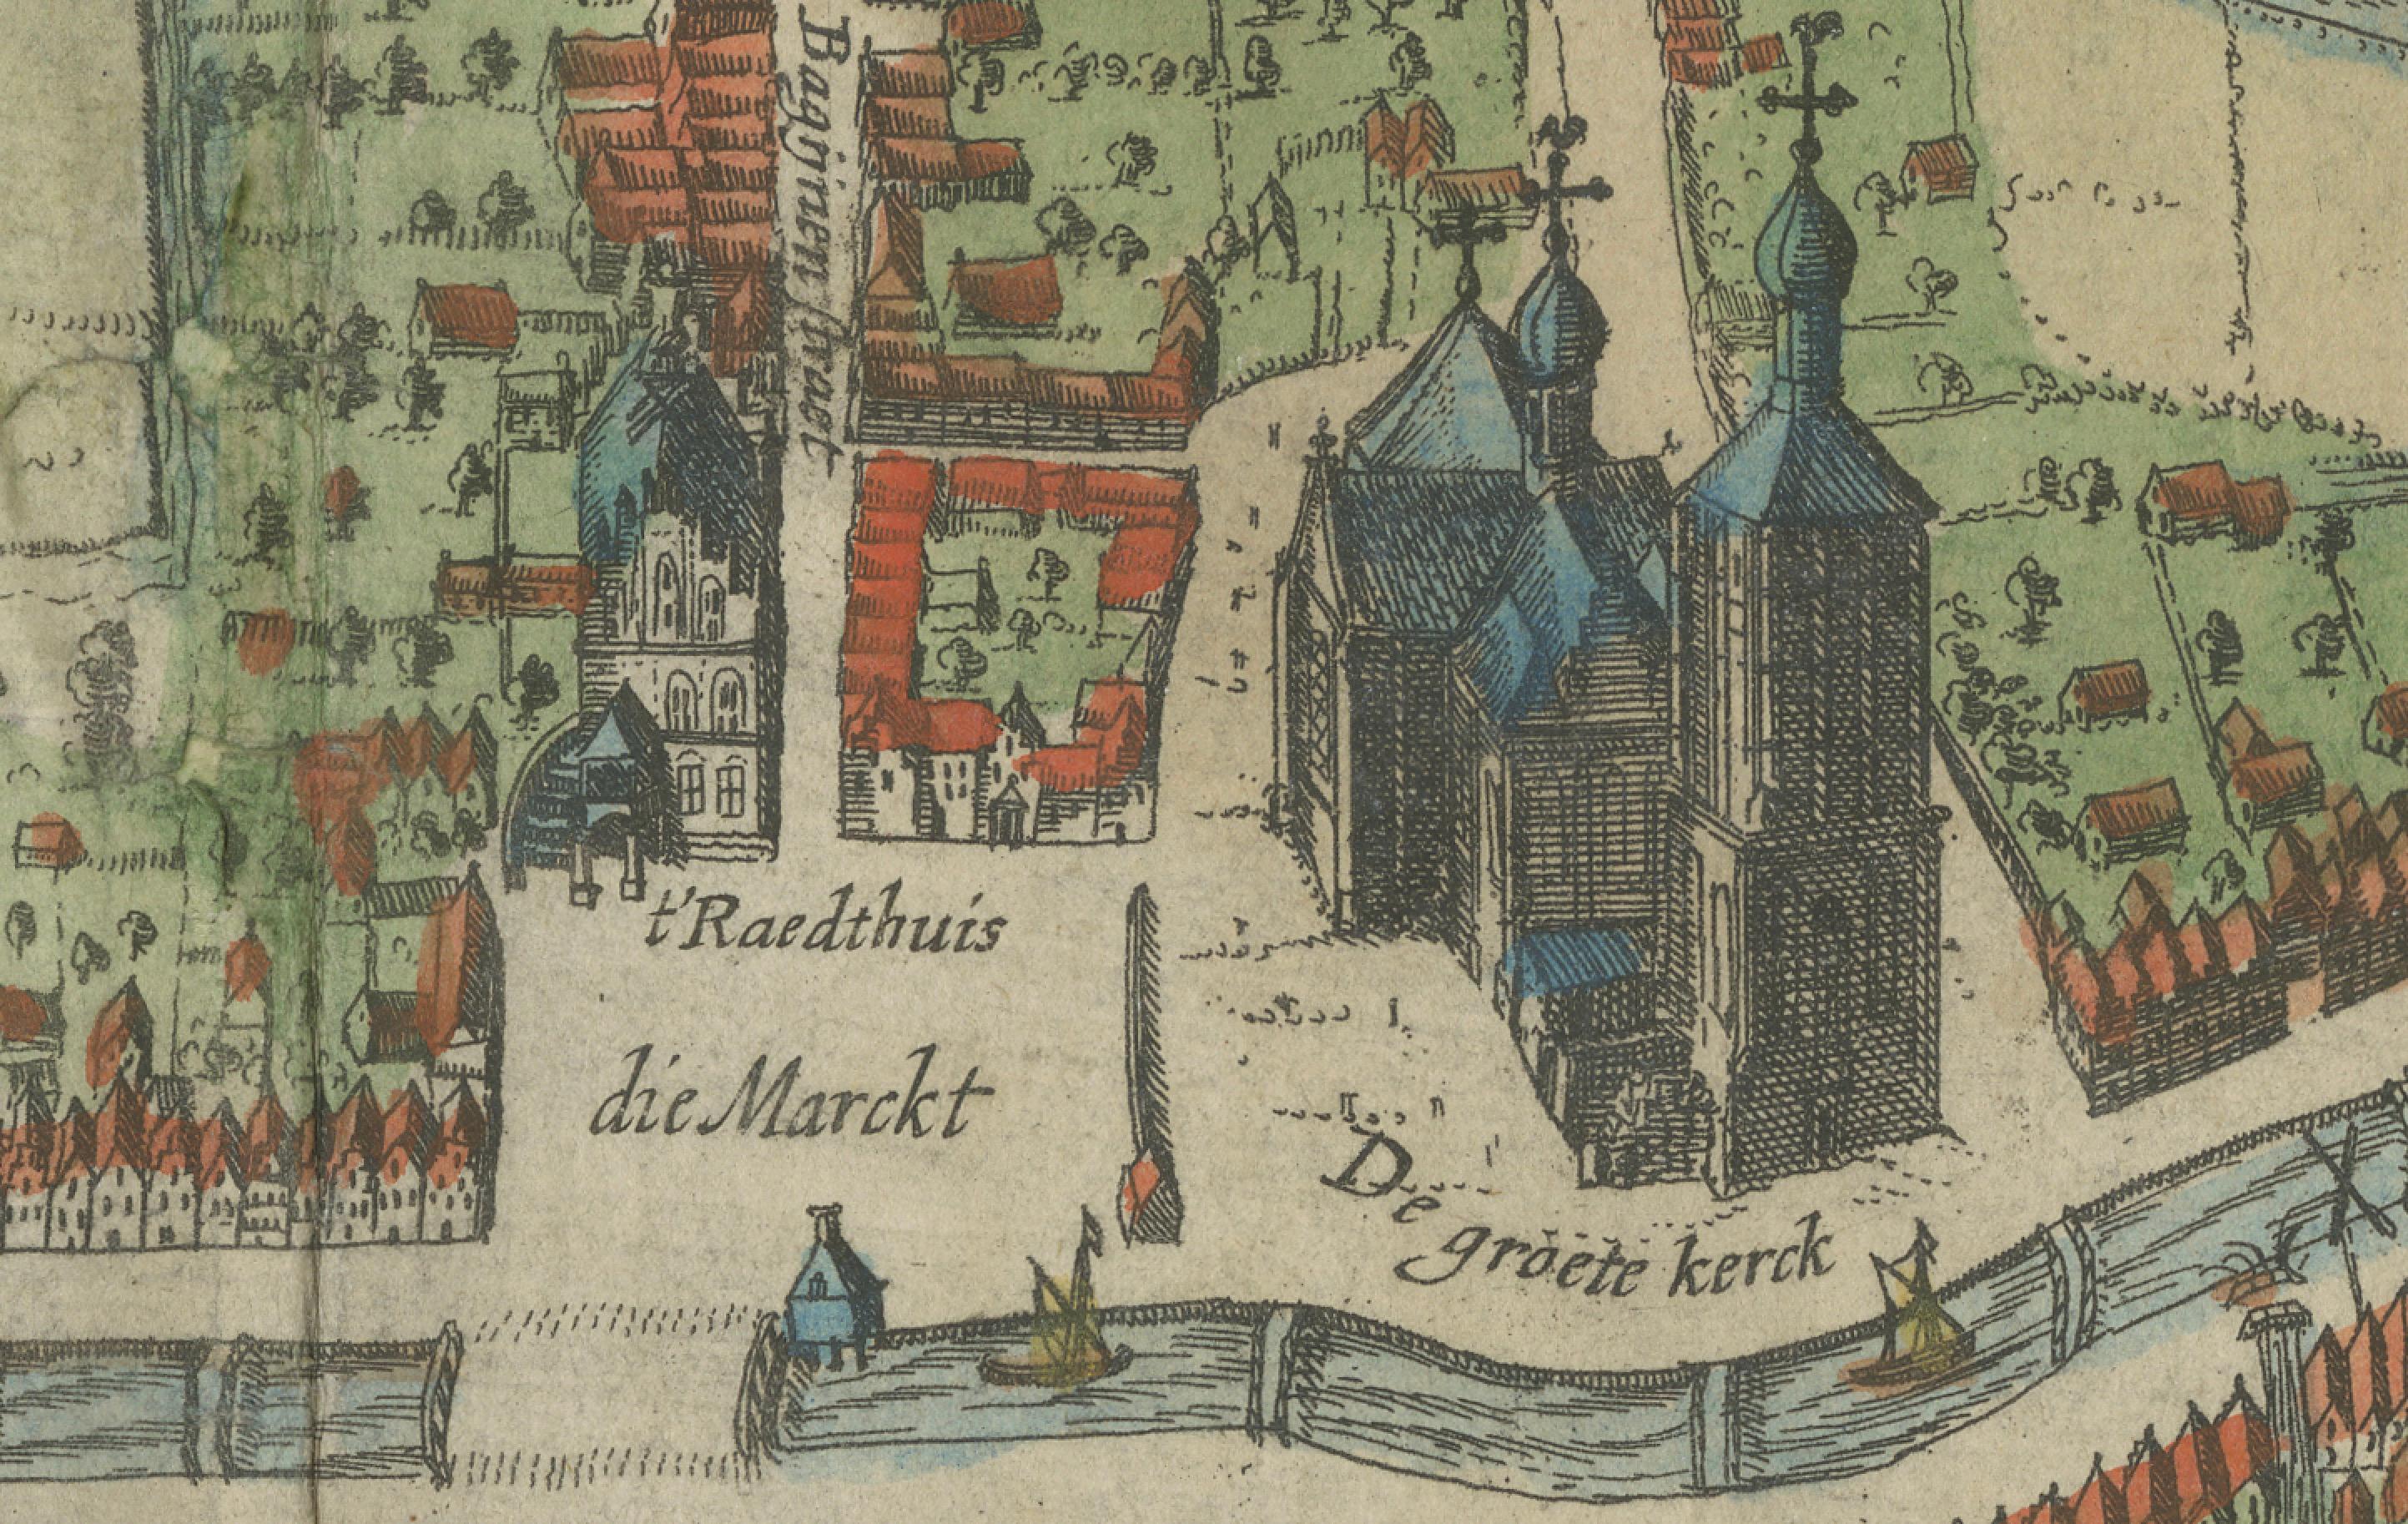 Bagijnen straet
t'Raedthuis
die Marckt
De groete kerck